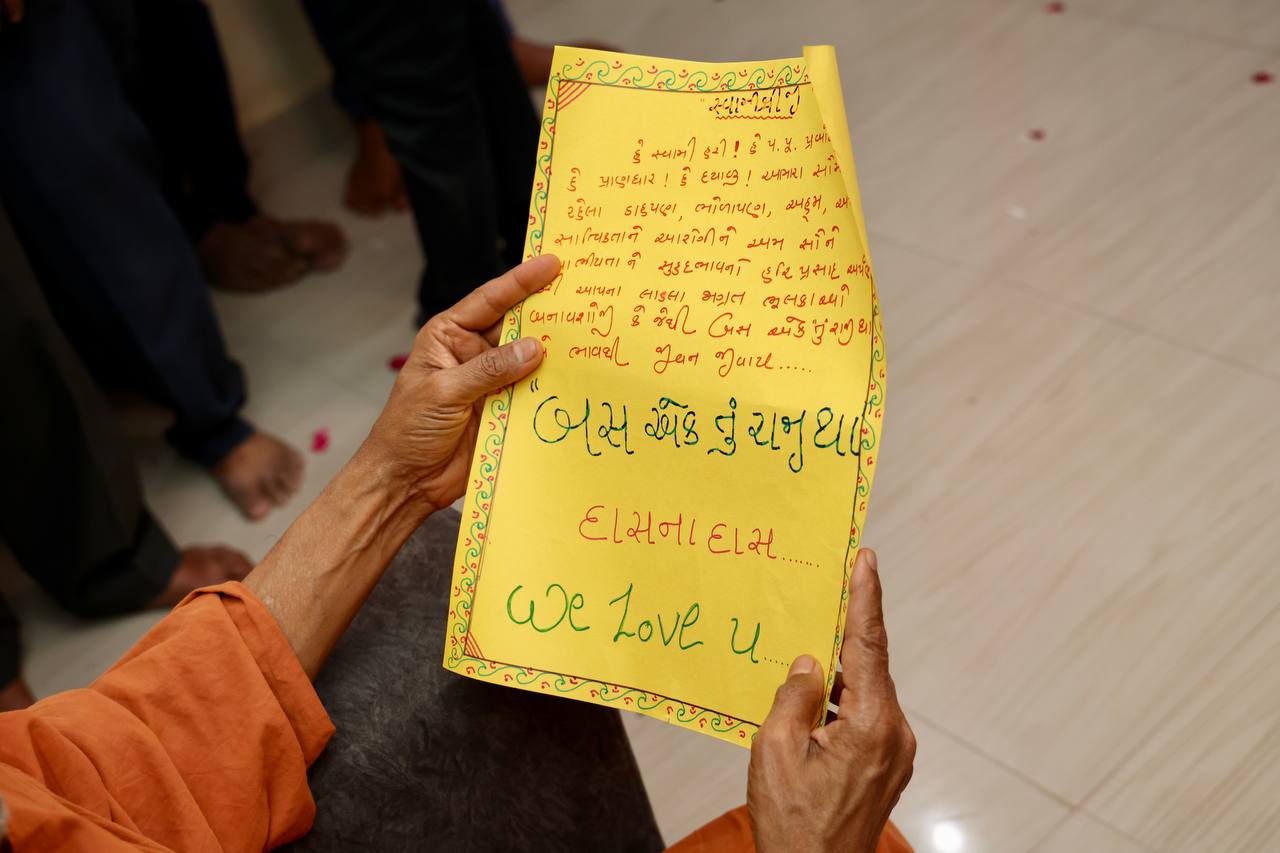 "સ્વામીશ્રીજી
હે સ્વામી હરી! હે પ.પૂ.
હે પ્રાણાધાર! હે દયાળુ! અમારા
રહેલા ડાહપણ, ભોળાપણ, અહમ્,
સાત્વિકતાને આરોગીને અમ સૌને
સુહૃદભાવનો હરિ પ્રસાદ
આપના લાડલા ભગત ભૂલકાંઓ
બનાવશોજી કે જેથી બસ એક તું રાજી થા
ભાવથી જીવન જીવાય.....
"બસ એક તું રાજી થા"
દાસના દાસ......
We Love U.....